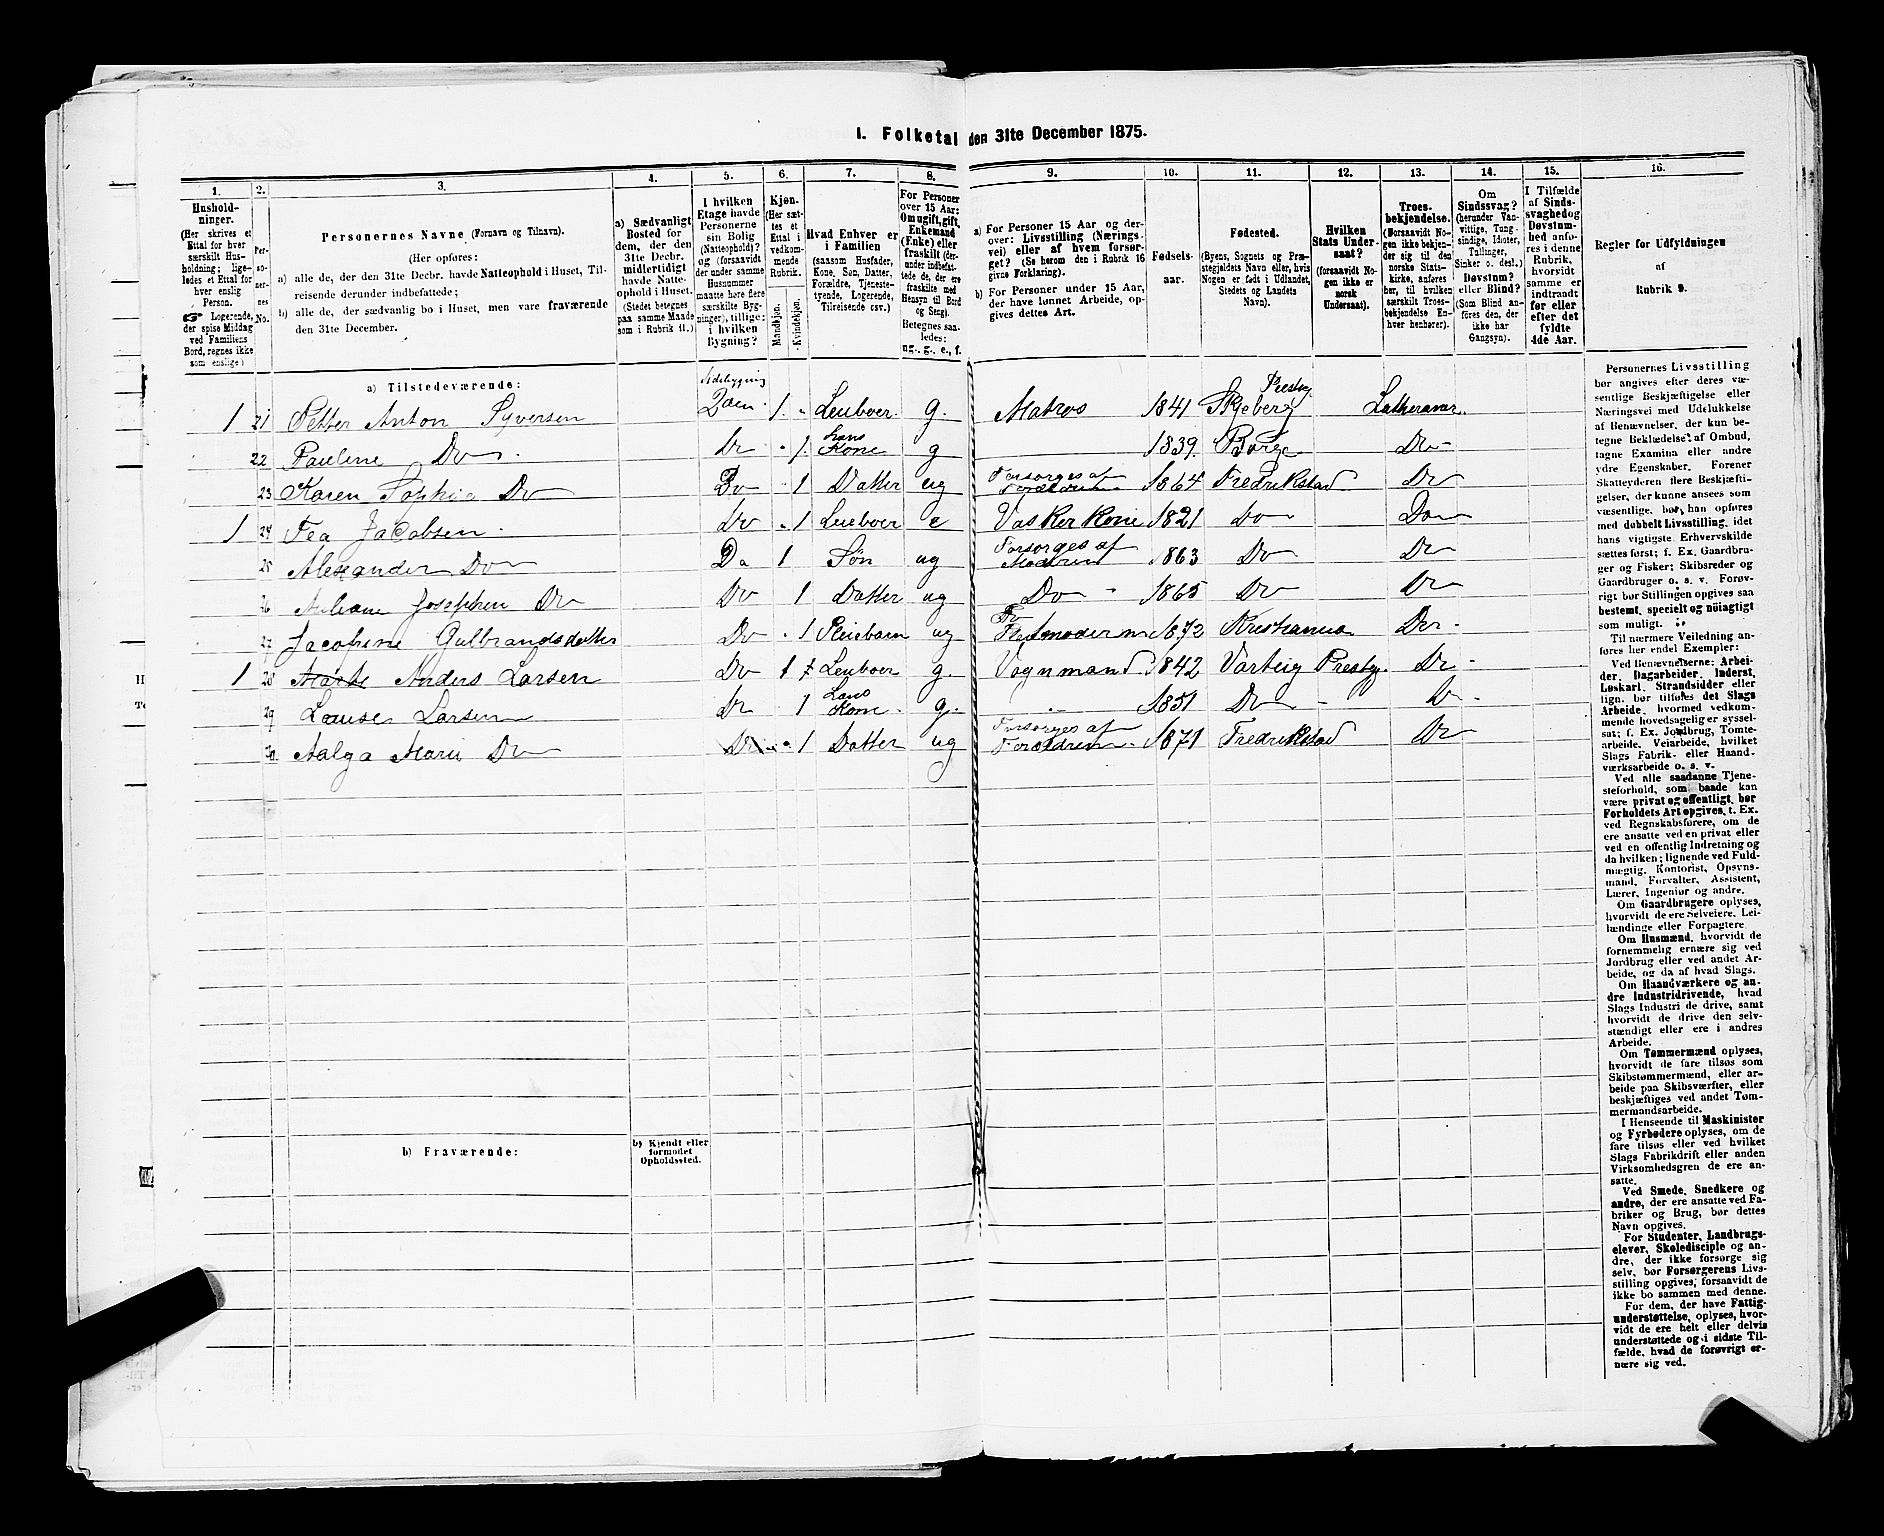 I. Folketal den 31te December 1875.
1.
2.
3.
4.
5.
6.
7.
8.
9.
10.
11.
12.
13.
14.
15.
16.
Hushold-
ninger.
(Her skrives et
Ettal for hver
særskilt Hus-
holdning; lige-
ledes et Ettal for
hver enslig
Person.
☞ Logerende,
der spise Middag
ved Familiens
Bord, regnes ikke
som enslige)
Per-
so-
ner-
nes
No.
Personernes Navne (Fornavn og Tilnavn).
(Her opføres:
a) alle de, der den 31te Decbr. havde Natteophold i Huset, Til-
reisende derunder indbefattede;
b) alle de, der sædvanlig bo i Huset, men vare fraværende
den 31te December.
a) Sædvanligt
Bosted for
dem, der den
31te Decbr.
midlertidigt
havde Natte-
ophold i Huset.
(Stedet betegnes
paa samme Maade
som i Rubrik 11.)
I hvilken
Etage havde
Personerne
sin Bolig
(Natteophold)?
og (forsaavidt
der under samme
Husnummer
maatte høre flere
særskilte Byg-
ninger), tillige:
i hvilken
Bygning?
Kjøn.
(Her sæt-
tes et
Ettal i
vedkom-
mende
Rubrik.
Mandkjøn.
Kvindekjøn.
Hvad Enhver er
i Familien
(saasom Husfader,
Kone, Søn, Datter,
Forældre, Tjeneste-
tyende, Logerende,
Tilreisende csv.)
For Personer
over 15 Aar:
Om ugift, gift,
Enkemand
(Enke) eller
fraskilt (der-
under indbefat-
tede de, der ere
fraskilte med
Hensyn til Bord
og Seng).
Betegnes saa-
ledes:
ug., g., e., f.
a) For Personer 15 Aar og der-
over: Livsstilling (Nærings-
vei) eller af hvem forsør-
get? (Se herom den i Rubrik 16
givne Forklaring).
b) For Personer under 15 Aar,
der have lønnet Arbeide, op-
gives dettes Art.
Fødsels-
aar.
Fødested.
(Byens, Sognets og Præ-
stegjeldets Navn eller, hvis
Nogen er født i Udlandet,
Stedets og Landets
Navn).
Hvilken
Stats Under-
saat?
(forsaavidt No-
gen ikke er
norsk
Undersaat).
Troes-
bekjendelse.
(Forsaavidt No-
gen ikke bekjen-
der sig til den
norske Stats-
kirke, anføres
her, til hvilken
særskilt Troes-
bekjendelse En-
hver henhører).
Om
Sindssvag?
(herunder Van-
vittige, Tung-
sindige, Idioter,
Tullinger,
Sinker o. desl.).
Døvstum?
eller Blind?
(Som Blind an-
føres den, der
ikke har
Gangsyn).
I Tilfælde
af Sinds-
svaghed og
Døvstum-
hed anfø-
res i denne
Rubrik,
hvorvidt
samme er
indtraadt
før eller
efter det
fyldte
4de Aar.
Regler for Udfyldningen
af
Rubrik 9.
a) Tilstedeværende:
1 21 Petter Anton Syversen 2den 1 Leieboer. g. Matros 1841 Skjeberg Presteg. Lutheraner.
22 Pauline Do Do 1 hans Kone g 1839 Borge Do
23 Karen Sophie Do Do 1 Datter ug Forsorges af Forældrene 1864 Fredrikstad Do
1 24 Fea Jacobsen Do 1 Leieboer e Vasker Kone 1821 Do Do
25 Alexander Do Do 1 Søn ug Forsorges af Moderen 1863 Do Do
26 Josephine Do Do 1 Datter ug Do 1865 Do Do
27 Jacobine Gulbrandsdatter Do 1 Pleiebarn ug Do Pleiemoderen 1872 Kristiania Do
1 28 Anders Larsen Do 1 Leieboer g. Vognmand 1842 Varteig Presteg. Do
29 Louise Larsen Do 1 hans Kone g. 1851 Do Do
30. Aalga Marie Do Do 1 Datter ug Forsorges af Forældrene 1871 Fredrikstad Do
b) Fraværende:
b) Kjendt eller
formodet
Opholdssted.
Personernes Livsstilling
bør angives efter deres væ-
sentlige Beskjæftigelse eller
Næringsvei med Udelukkelse
af Benævnelser, der kun be-
tegne Beklædelse af Ombud,
tagne Examina eller andre
ydre Egenskaber. Forener
Skatteyderen flere Beskjæfti-
gelser, der kunne ansees som
væsentlige, bør han opføres
med dobbelt Livsstilling, idet
hans vigtigste Erhvervskilde
sættes først; f. Ex. Gaardbru-
ger og Fisker; Skibsreder og
Gaardbruger o. s. v. Forøv-
rigt bør Stillingen opgives saa
bestemt, specielt og nøiagtigt
som muligt.
Til nærmere Veiledning an-
føres her endel Exempler:
Ved Benævnelserne: Arbei-
der, Dagarbeider, Inderst,
Løskarl, Strandsidder eller
lign. bør tilføies det Slags
Arbeide, hvormed vedkom-
mende hovedsagelig er syssel-
sat; f. Ex. Jordbrug, Tomte-
arbeide, Veiarbeide, hvilket
Slags Fabrik- eller Haand-
værksarbeide o. s. v.
Ved alle saadanne Tjene-
steforhold, som baade kan
være privat og offentligt, bør
Forholdets Art opgives, t. Ex.
ved Regnskabsførere, om de
ere ansatte ved en privat eller
ved en offentlig Indretning og
da hvilken; lignende ved Fuld-
mægtig, Kontorist, Opsyns-
mand, Forvalter, Assistent,
Lærer, Ingeniør og andre.
Om Gaardbrugere oplyses,
hvorvidt de ere Selveiere, Lei-
lændinge eller Forpagtere.
Om Husmænd, hvorvidt de
fornemmelig ernære sig ved
Jordbrug eller ved andet Ar-
beide, og da af hvad Slags.
Om Haandværkere og an-
dre Industridrivende, hvad
Slags Industri de drive, samt
hvorvidt de drive den selv-
stændigt eller ere i andres
Arbeide.
Om Tømmermænd oplyses,
hvorvidt de fare tilsøs som
Skibstømmermænd, eller ar-
beide paa Skibsværfter, eller
beskjæftiges ved andet Tøm-
mermandsarbeide.
I Henseende til Maskinister
og Fyrbødere oplyses, om de
fare tilsøs eller ved hvilket
Slags Fabrikdrift eller anden
Virksomhedsgren de ere an-
satte.
Ved Smede, Snedkere og
andre, der ere ansatte ved Fa-
briker og Brug, bør dettes
Navn opgives.
For Studenter, Landbrugs-
elever, Skoledisciple og an-
dre, der ikke forsørge sig
selv, bør Forsørgerens Livs-
stilling opgives, forsaavidt de
ikke bo sammen med denne.
For dem, der have Fattig-
understøttelse, oplyses, hvor-
vidt de ere helt eller delvis
understøttede og i sidste Til-
fælde, hvad de forøvrigt er-
nære sig ved.